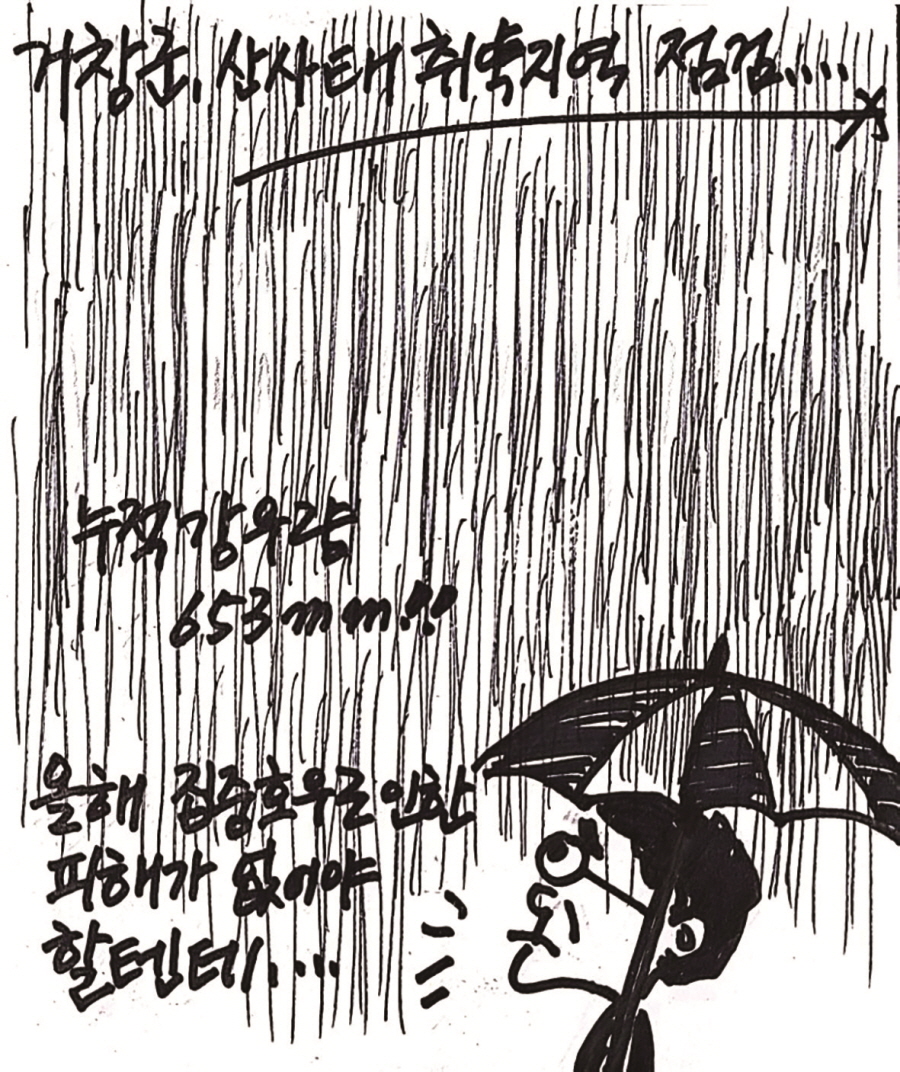 거창군, 산사태 취약지역 점검....
누적강우량
653mm!!
올해 집중호우로 인한
피해가 없어야
할텐데....